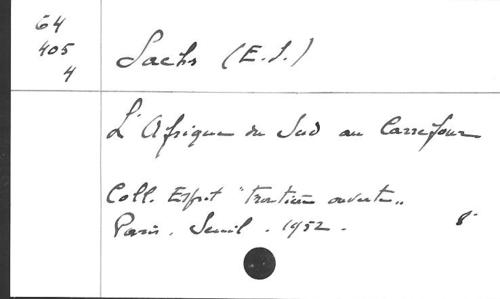 64
405
4
Sachs (E. S.)
L'Afrique du Sud au Carrefour
Coll. Esprit "Frontière ouverte"
Paris. Seuil. 1952. 8°